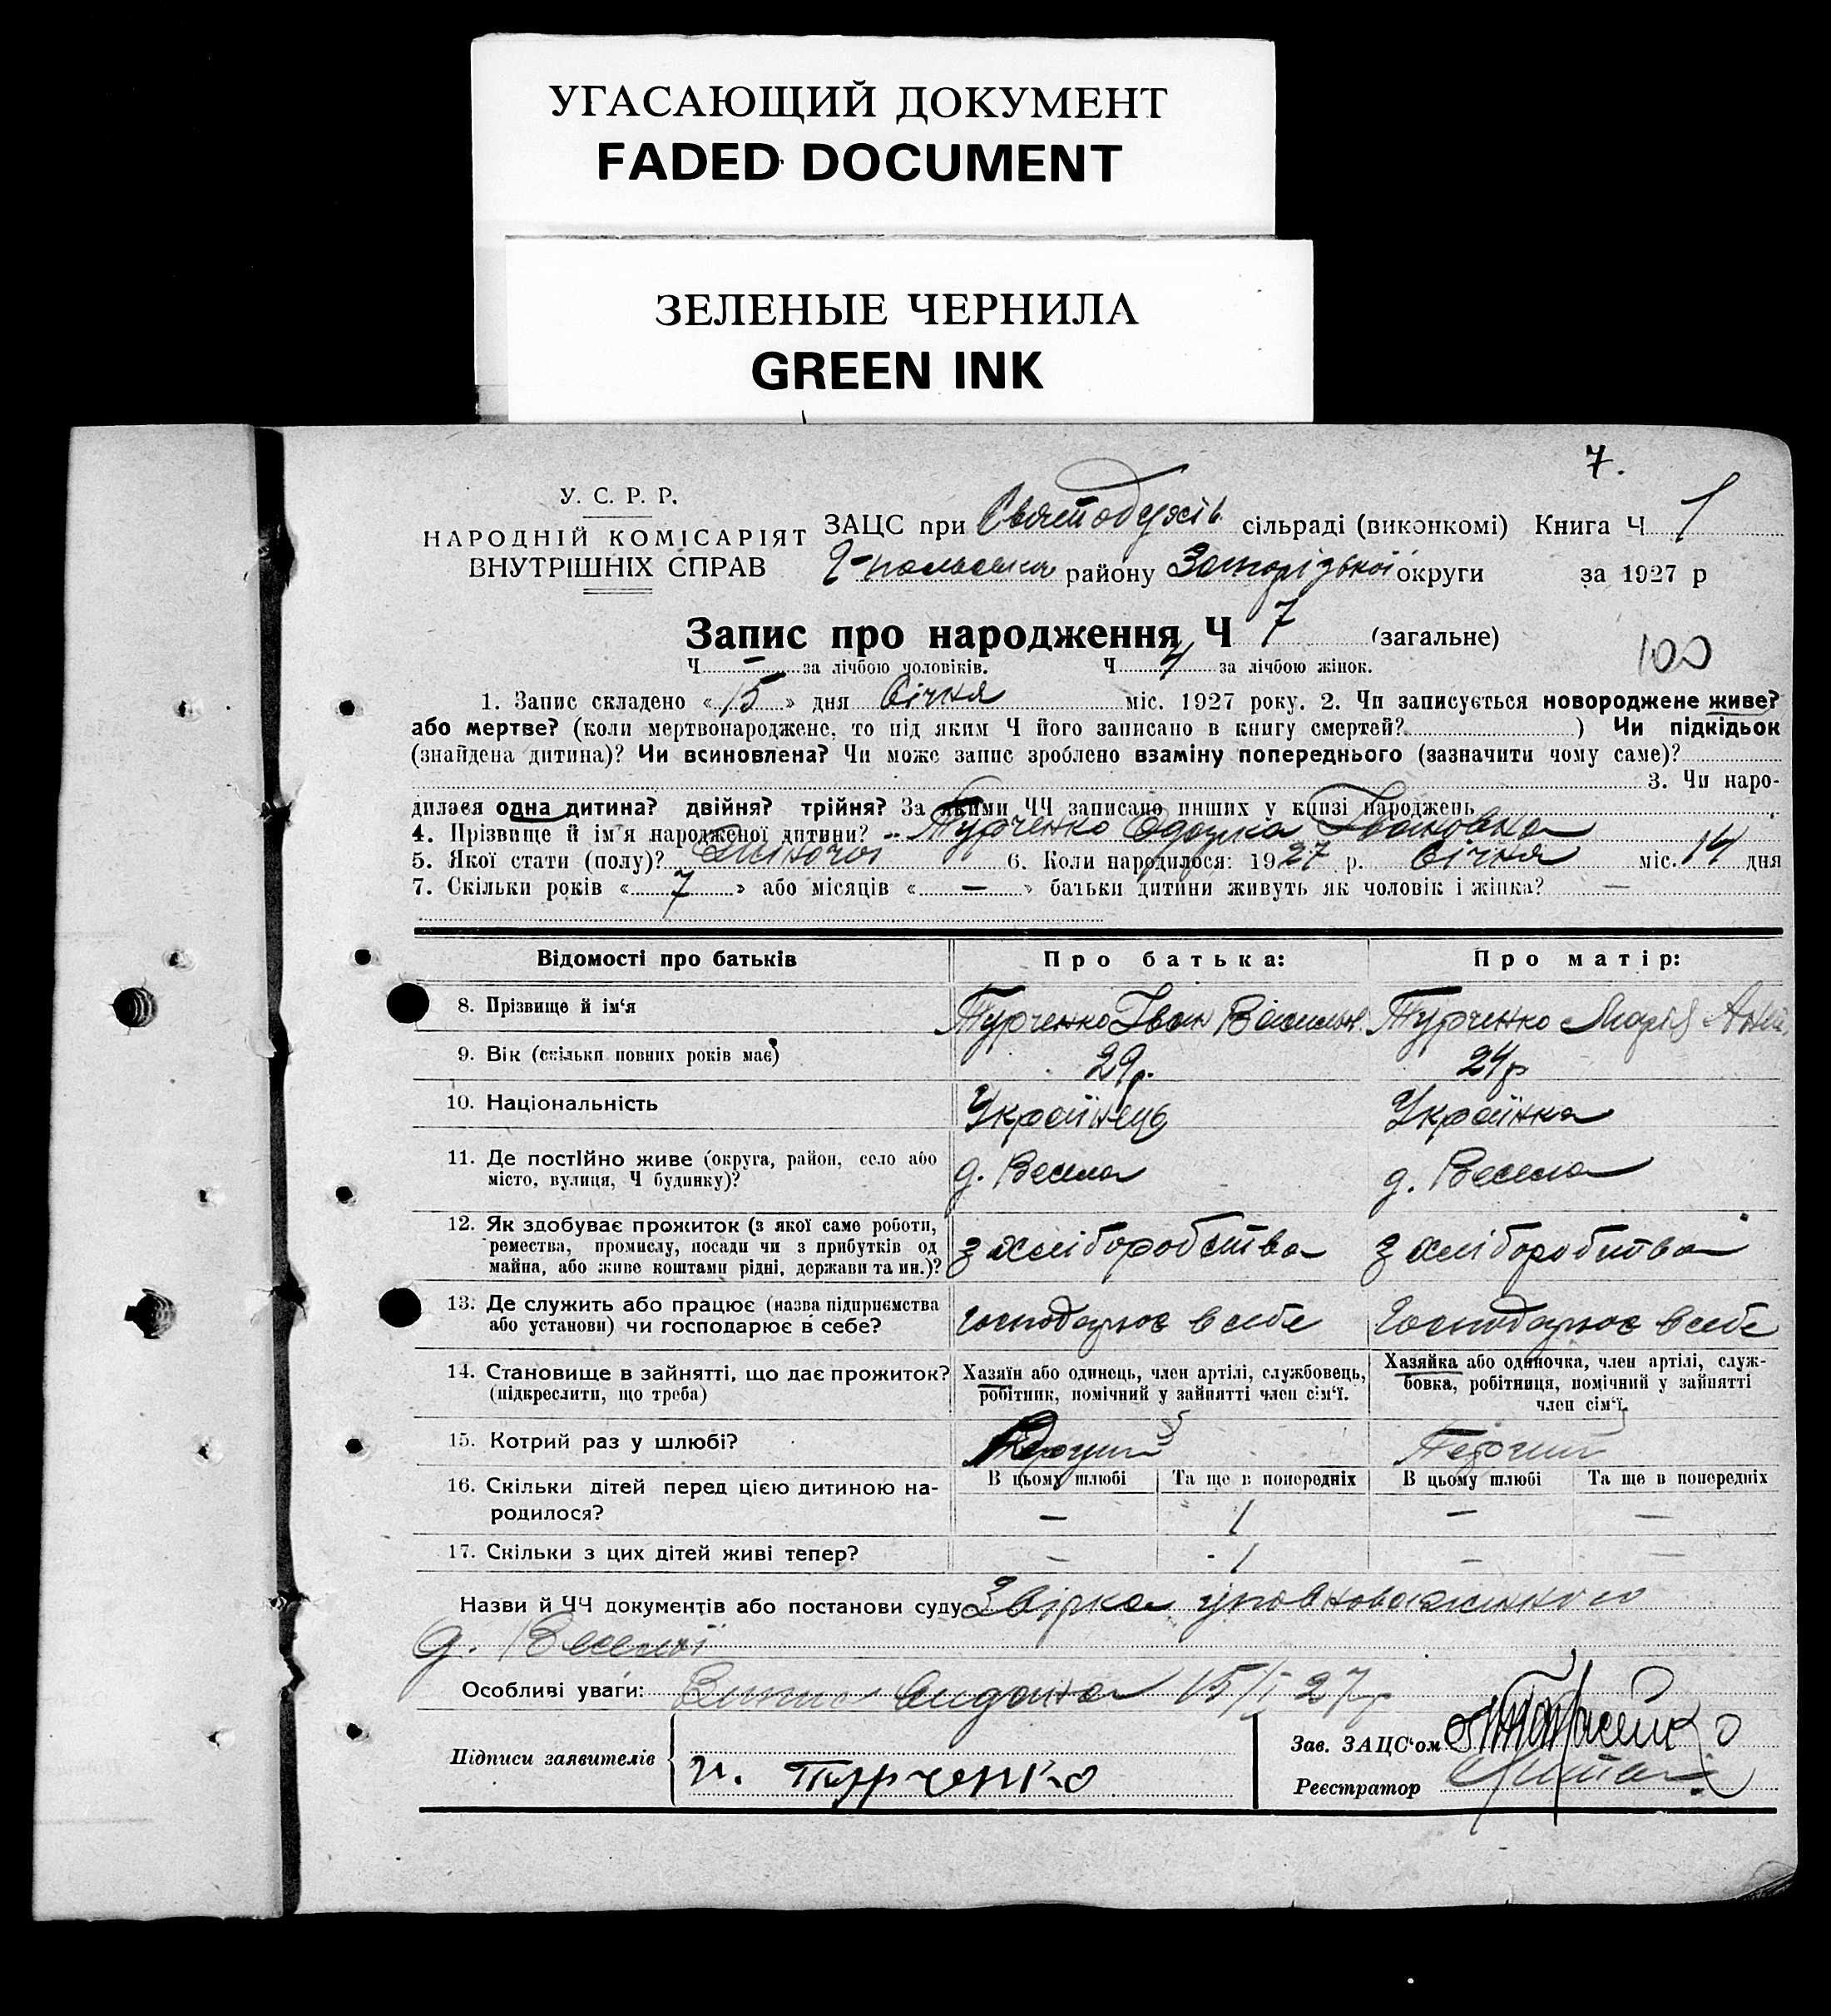 УГАСАЮЩИЙ ДОКУМЕНТ
FADED DOCUMENT
ЗЕЛЕНЫЕ ЧЕРНИЛА
GREEN INK
7.
У. С. Р. Р.
НАРОДНІЙ КОМІСАРІЯТ
ВНУТРІШНІХ СПРАВ
ЗАЦС при Святодухів. сільраді (виконкомі) Книга Ч 1
району Запорізької округи за 1927 р
Запис про народження Ч 7 (загальне)
100
Ч – за лічбою чоловіків. Ч 4 за лічбою жінок.
1. Запис складено « 15 » дня Січня міс. 1927 року. 2. Чи записується новороджене живе?
або мертве? (коли мертвонароджене, то під яким Ч його записано в книгу смертей? ) Чи підкідьок
(знайдена дитина)? Чи всиновлена? Чи може запис зроблено взаміну попереднього (зазначити чому саме)?
3. Чи наро-
дилася одна дитина? двійня? трійня? За якими ЧЧ записано инших у книзі народжень
4. Прізвище й ім'я народженої дитини? Турченко Одарка Івановна
5. Якої стати (полу)? Жіночої 6. Коли народилося: 1927 р. Січня міс. 14 дня
7. Скільки років « 7 » або місяців « — » батьки дитини живуть як чоловік і жінка? —
Відомості про батьків
Про батька:
Про матір:
8. Прізвище й ім'я
Турченко Іван Васильов.
Турченко Марія
9. Вік (скільки повних років має)
29 р.
24 р
10. Національність
Українець
Українка
11. Де постійно живе (округа, район, село або
місто, вулиця, Ч будинку)?
д. Весела
д. Весела
12. Як здобуває прожиток (з якої саме роботи,
ремества, промислу, посади чи з прибутків од
майна, або живе коштами рідні, держави та ин.)?
з хліборобства
з хліборобства
13. Де служить або працює (назва підприємства
або установи) чи господарює в себе?
господарює в себе
Господарює в себе
14. Становище в зайнятті, що дає прожиток?
(підкреслити, що треба)
Хазяїн або одинець, член артілі, службовець,
робітник, помічний у зайнятті член сім'ї.
Хазяйка або одиночка, член артілі, служ-
бовка, робітниця, помічний у зайнятті
член сім'ї.
15. Котрий раз у шлюбі?
Перший
16. Скільки дітей перед цією дитиною на-
родилося?
В цьому шлюбі
Та ще в попередніх
В цьому шлюбі
Та ще в попередніх
— 1 — —
17. Скільки з цих дітей живі тепер?
— 1 — —
Назви й ЧЧ документів або постанови суду Звірка уповноваженного
д. Веселої
Особливі уваги: 15/I 27 р
Підписи заявителів
И. Турченко
Зав. ЗАЦС'ом
Реєстратор